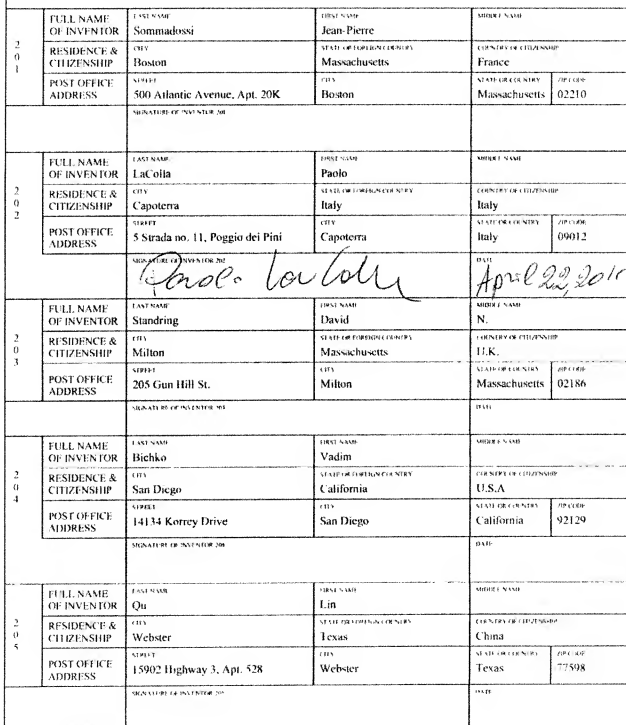 201
FULL NAME OF INVENTOR LAST NAME Sommadossi FIRST NAME Jean-Pierre MIDDLE NAME
RESIDENCE & CITIZENSHIP CITY Boston STATE OR FOREIGN COUNTRY Massachusetts COUNTRY OF CITIZENSHIP France
POST OFFICE ADDRESS STREET 500 Atlantic Avenue, Apt. 20K CITY Boston STATE OR COUNTRY Massachusetts ZIP CODE 02210
SIGNATURE OF INVENTOR 201
202
FULL NAME OF INVENTOR LAST NAME LaColla FIRST NAME Paolo MIDDLE NAME
RESIDENCE & CITIZENSHIP CITY Capoterra STATE OR FOREIGN COUNTRY Italy COUNTRY OF CITIZENSHIP Italy
POST OFFICE ADDRESS STREET 5 Strada no. 11, Poggio dei Pini CITY Capoterra STATE OR COUNTRY Italy ZIP CODE 09012
SIGNATURE OF INVENTOR 202 Paolo La Colla DATE April 22, 
203
FULL NAME OF INVENTOR LAST NAME Standring FIRST NAME David MIDDLE NAME N.
RESIDENCE & CITIZENSHIP CITY Milton STATE OR FOREIGN COUNTRY Massachusetts COUNTRY OF CITIZENSHIP U.K.
POST OFFICE ADDRESS STREET 205 Gun Hill St. CITY Milton STATE OR COUNTRY Massachusetts ZIP CODE 02186
SIGNATURE OF INVENTOR 203 DATE
204
FULL NAME OF INVENTOR LAST NAME Bichko FIRST NAME Vadim MIDDLE NAME
RESIDENCE & CITIZENSHIP CITY San Diego STATE OR FOREIGN COUNTRY California COUNTRY OF CITIZENSHIP U.S.A
POST OFFICE ADDRESS STREET 14134 Korrey Drive CITY San Diego STATE OR COUNTRY California ZIP CODE 92129
SIGNATURE OF INVENTOR 204 DATE
205
FULL NAME OF INVENTOR LAST NAME Qu FIRST NAME Lin MIDDLE NAME
RESIDENCE & CITIZENSHIP CITY Webster STATE OR FOREIGN COUNTRY Texas COUNTRY OF CITIZENSHIP China
POST OFFICE ADDRESS STREET 15902 Highway 3, Apt. 528 CITY Webster STATE OR COUNTRY Texas ZIP CODE 77598
SIGNATURE OF INVENTOR 205 DATE